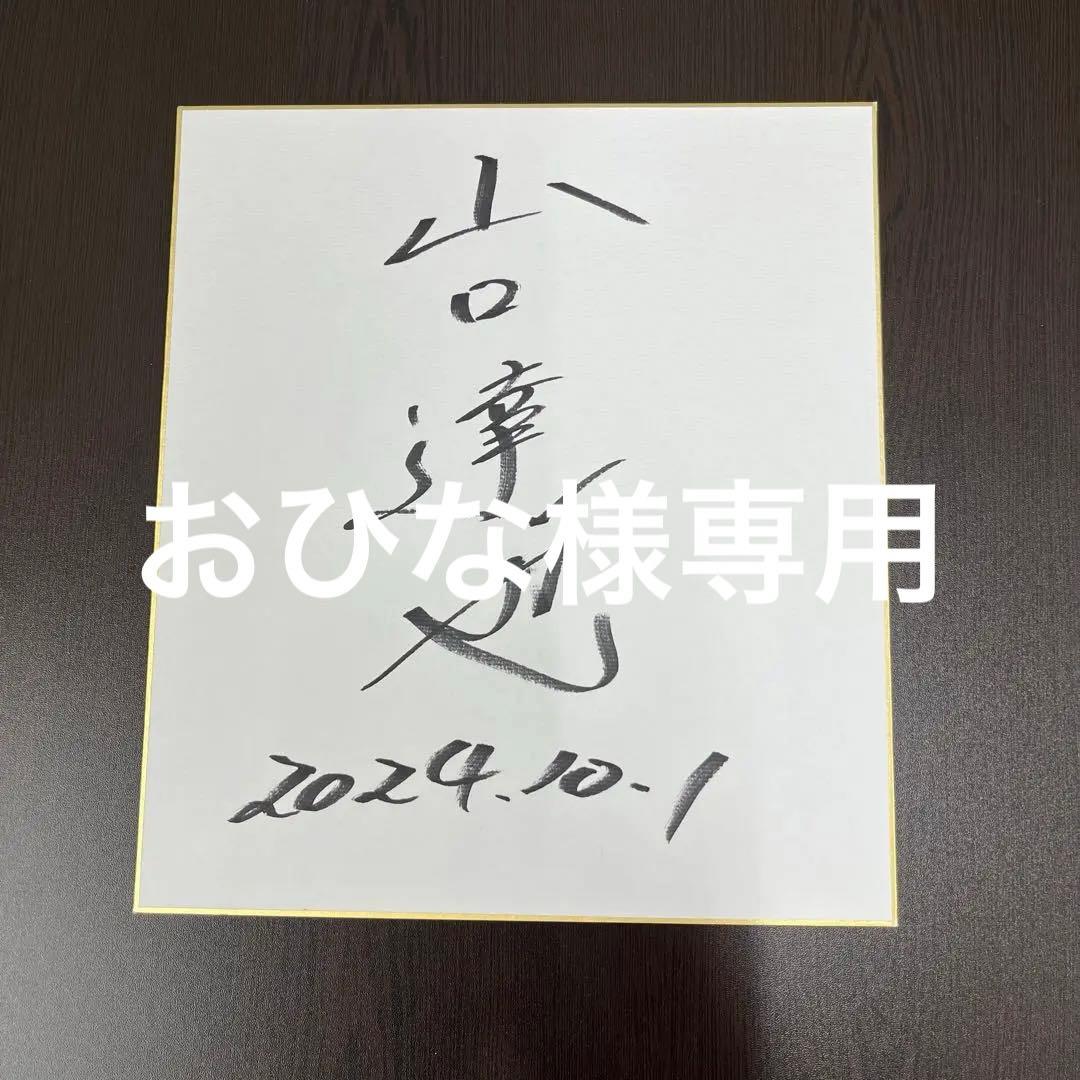 山口達也
おひな様専用
2024.10.1